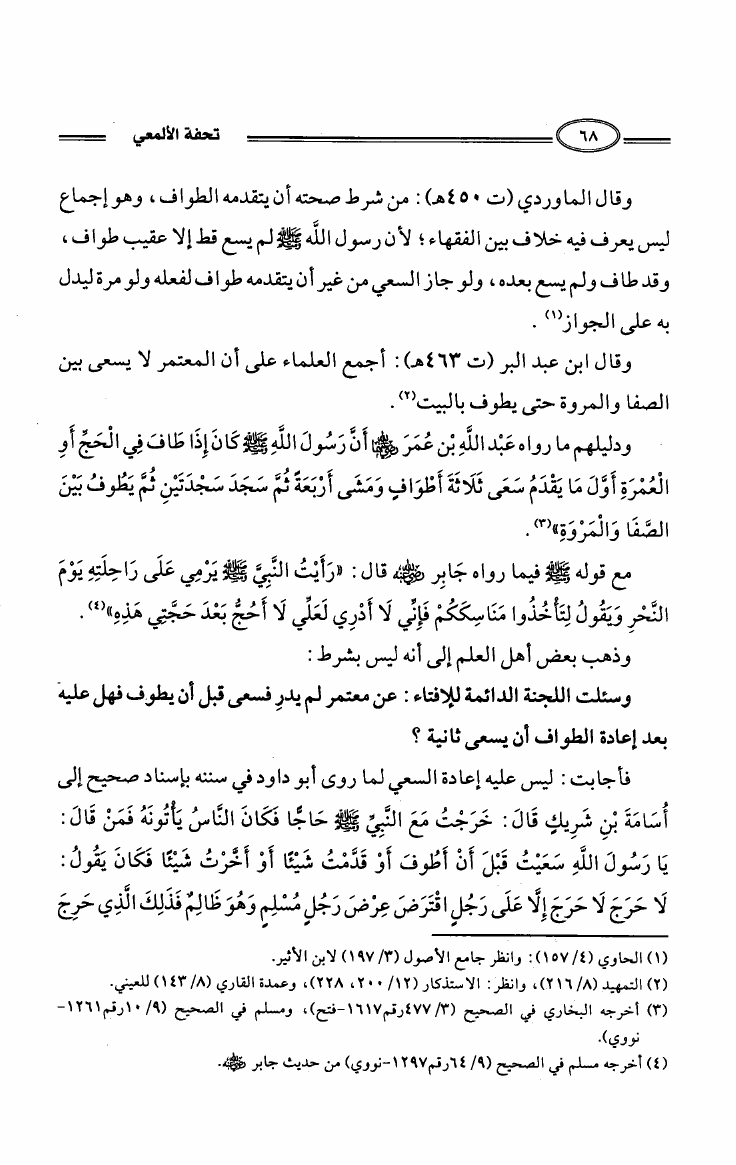 ٦٨ تحفة الألمعي
وقال الماوردي (ت ٤٥٠هـ): من شرط صحته أن يتقدمه الطواف، وهو إجماع
ليس يعرف فيه خلاف بين الفقهاء؛ لأن رسول الله ﷺ لم يسع قط إلا عقيب طواف،
وقد طاف ولم يسع بعده، ولو جاز السعي من غير أن يتقدمه طواف لفعله ولو مرة ليدل
به على الجواز(١).
وقال ابن عبد البر (ت ٤٦٣هـ): أجمع العلماء على أن المعتمر لا يسعى بين
الصفا والمروة حتى يطوف بالبيت(٢).
ودليلهم ما رواه عَبْد اللَّهِ بْن عُمَرَ رضي الله عنهما أَنَّ رَسُولَ اللَّهِ ﷺ كَانَ إِذَا طَافَ فِي الْحَجِّ أَوِ
الْعُمْرَةِ أَوَّلَ مَا يَقْدَمُ سَعَى ثَلَاثَةَ أَطْوَافٍ وَمَشَى أَرْبَعَةً ثُمَّ سَجَدَ سَجْدَتَيْنِ ثُمَّ يَطُوفُ بَيْنَ
الصَّفَا وَالْمَرْوَةِ»(٣).
مع قوله ﷺ فيما رواه جَابِر رضي الله عنه قال: «رَأَيْتُ النَّبِيَّ ﷺ يَرْمِي عَلَى رَاحِلَتِهِ يَوْمَ
النَّحْرِ وَيَقُولُ لِتَأْخُذُوا مَنَاسِكَكُمْ فَإِنِّي لَا أَدْرِي لَعَلِّي لَا أَحُجُّ بَعْدَ حَجَّتِي هَذِهِ»(٤).
وذهب بعض أهل العلم إلى أنه ليس بشرط:
وسئلت اللجنة الدائمة للإفتاء: عن معتمر لم يدرِ فسعى قبل أن يطوف فهل عليه
بعد إعادة الطواف أن يسعى ثانية؟
فأجابت: ليس عليه إعادة السعي لما روى أبو داود في سننه بإسناد صحيح إلى
أُسَامَةَ بْنِ شَرِيكٍ قَالَ: خَرَجْتُ مَعَ النَّبِيِّ ﷺ حَاجًّا فَكَانَ النَّاسُ يَأْتُونَهُ فَمَنْ قَالَ:
يَا رَسُولَ اللَّهِ سَعَيْتُ قَبْلَ أَنْ أَطُوفَ أَوْ قَدَّمْتُ شَيْئًا أَوْ أَخَّرْتُ شَيْئًا فَكَانَ يَقُولُ:
لَا حَرَجَ لَا حَرَجَ إِلَّا عَلَى رَجُلٍ اقْتَرَضَ عِرْضَ رَجُلٍ مُسْلِمٍ وَهُوَ ظَالِمٌ فَذَلِكَ الَّذِي حَرِجَ
(١) الحاوي (٤/ ١٥٧): وانظر جامع الأصول (٣/ ١٩٧) لابن الأثير.
(٢) التمهيد (٨/ ٢١٦)، وانظر: الاستذكار (١٢/ ٢٠٠، ٢٢٨)، وعمدة القاري (٨/ ١٤٣) للعيني.
(٣) أخرجه البخاري في الصحيح (٣/ ٤٧٧رقم١٦١٧-فتح)، ومسلم في الصحيح (٩/ ١٠رقم١٢٦١-
نووي).
(٤) أخرجه مسلم في الصحيح (٩/ ٦٤رقم١٢٩٧-نووي) من حديث جابر رضي الله عنه.